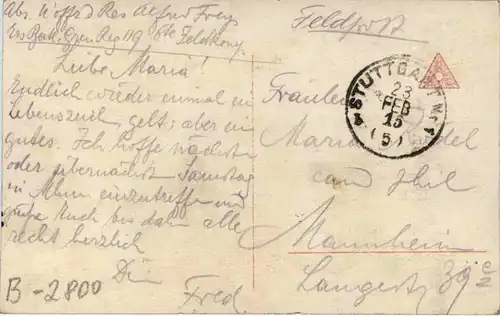 Abs. Uoffz d Res Alfred Frey
Ers Batl. Gren Reg 119 6te Feldkomp.
Feldpost
Liebe Maria!
Endlich wieder einmal ein
Lebenszeichen gelt; aber ein
gutes. Ich hoffe nächsten
oder übernächst. Samstag
in Mhm einzutreffen und
grüße Euch bis dahin alle
recht herzlich
Dein
Fred.
B-2800
STUTTGART Nr.
23
FEB
15
(5)
Fräulein
Maria
Mannheim
Langerstr. 39 c/2